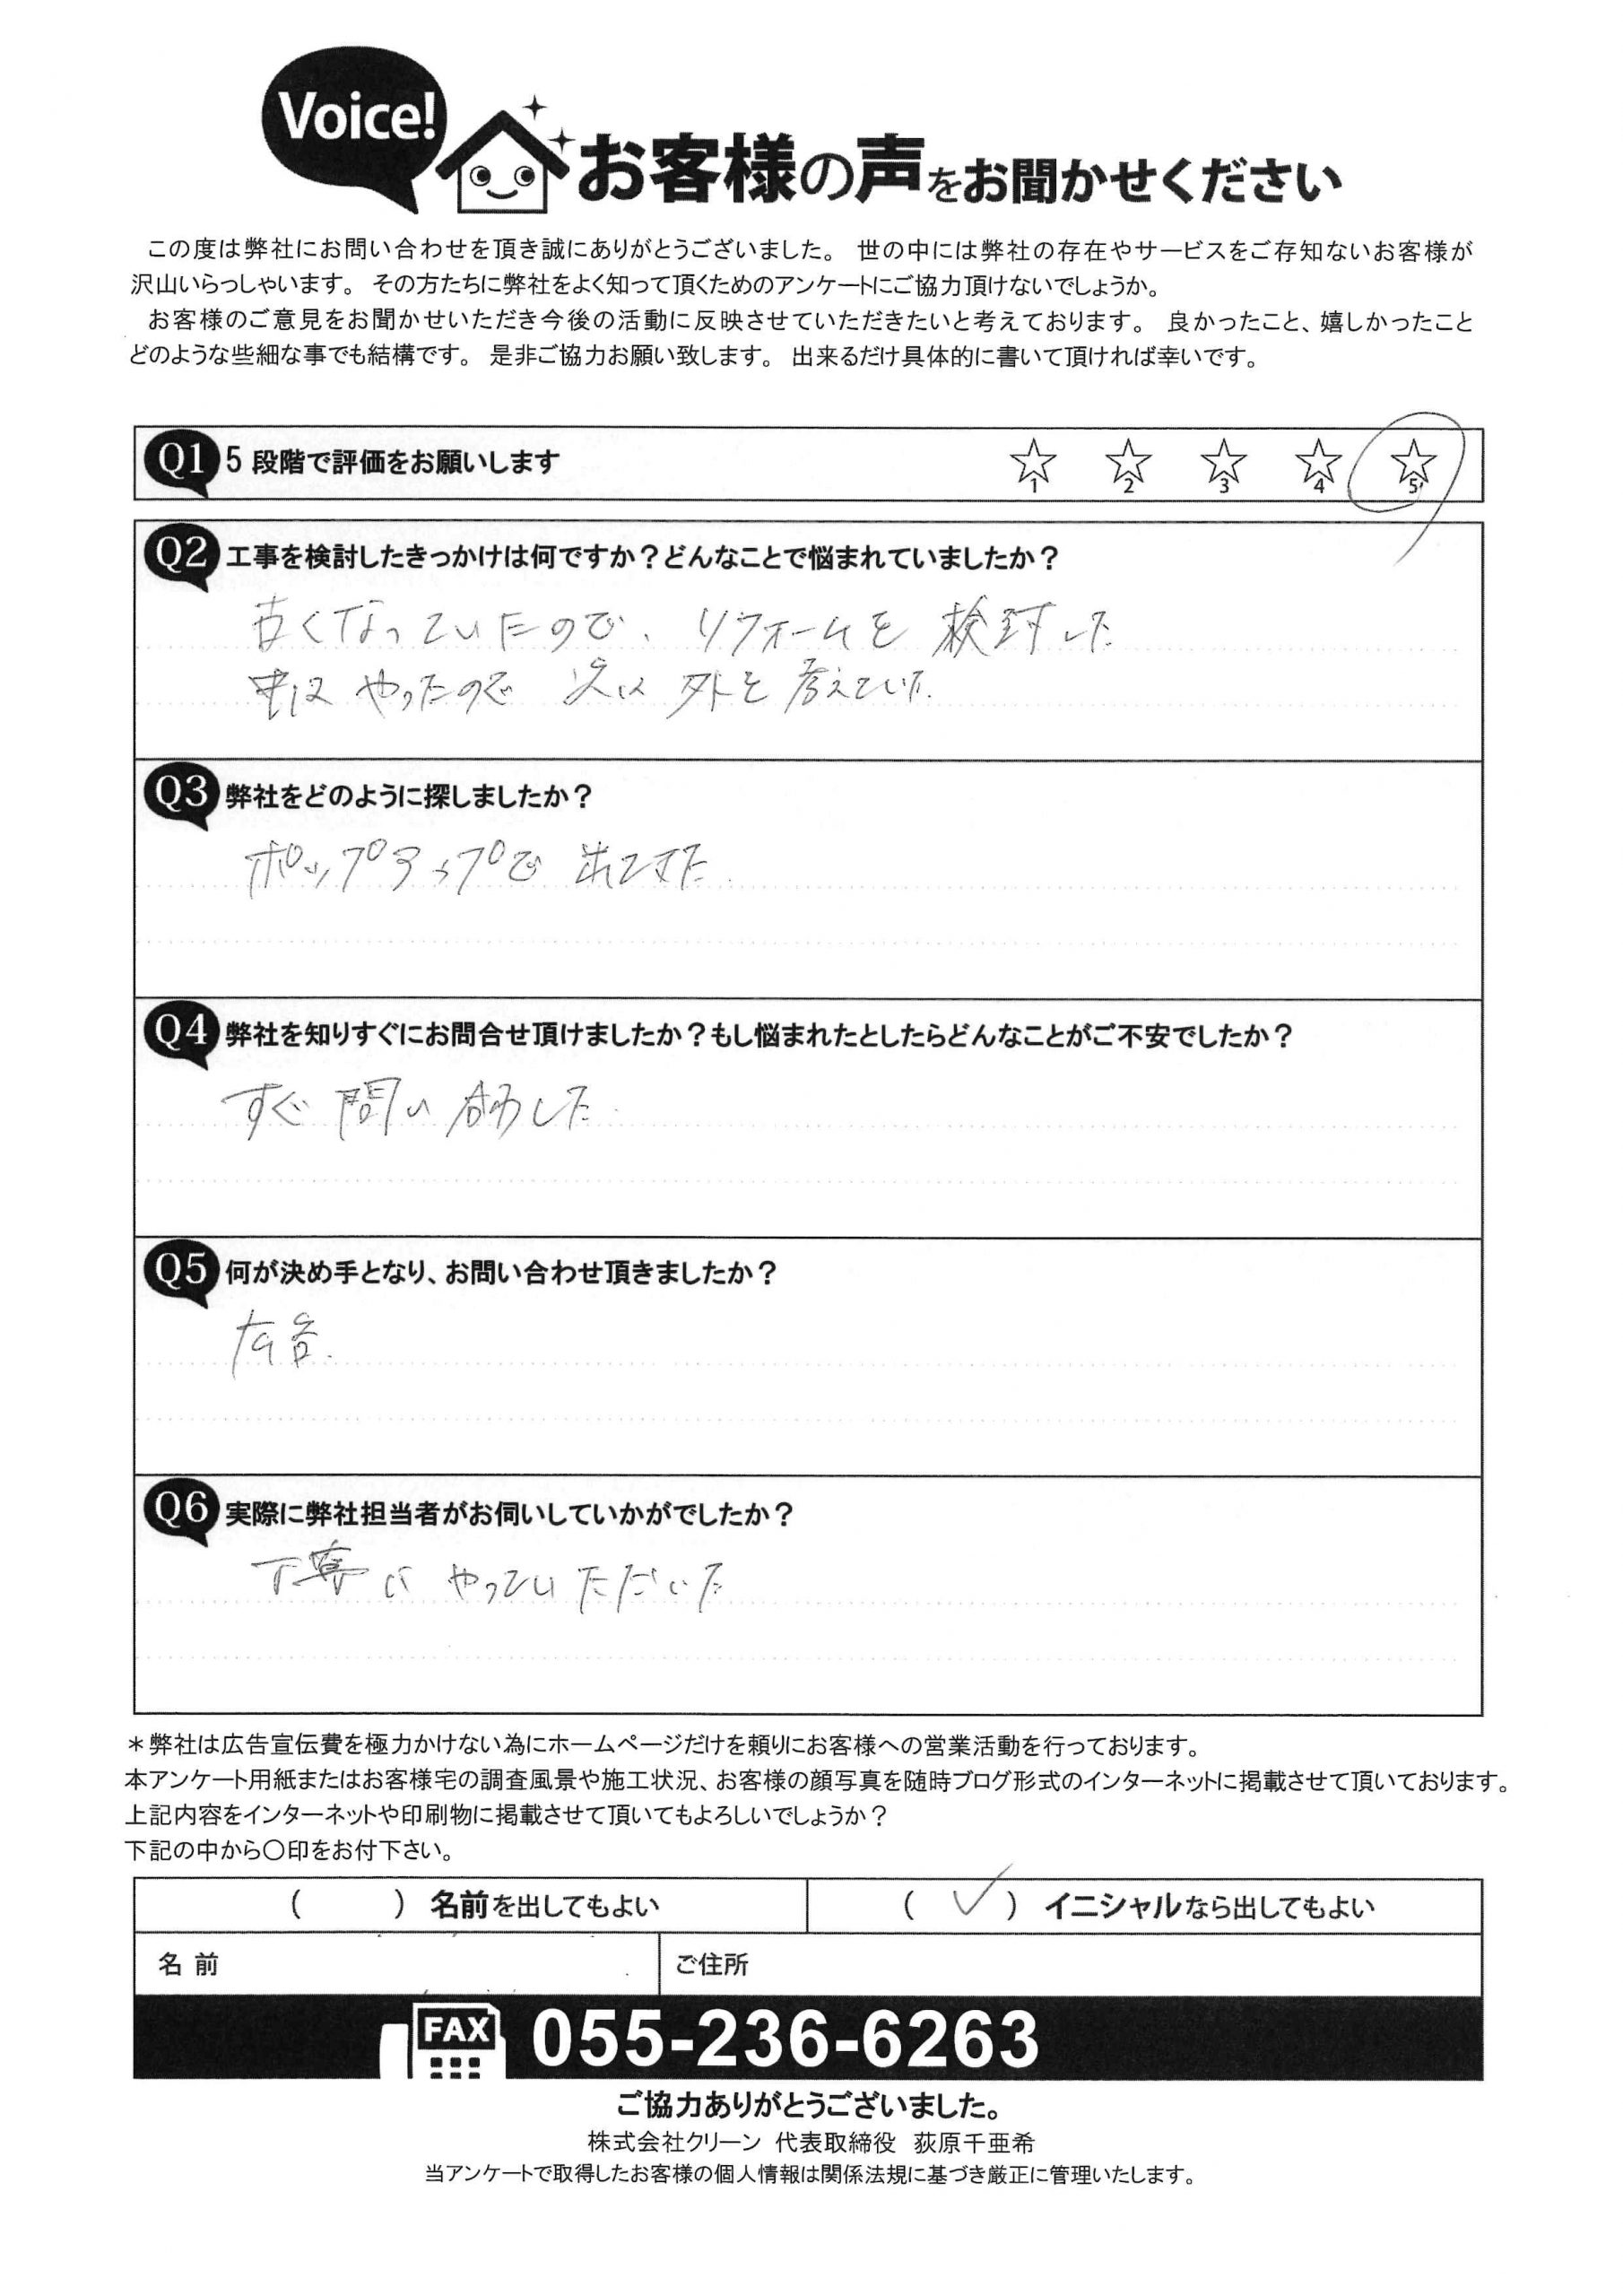 Voice!
お客様の声をお聞かせください
この度は弊社にお問い合わせを頂き誠にありがとうございました。 世の中には弊社の存在やサービスをご存知ないお客様が
沢山いらっしゃいます。 その方たちに弊社をよく知って頂くためのアンケートにご協力頂けないでしょうか。
お客様のご意見をお聞かせいただき今後の活動に反映させていただきたいと考えております。 良かったこと、嬉しかったこと
どのような些細な事でも結構です。 是非ご協力お願い致します。 出来るだけ具体的に書いて頂ければ幸いです。
Q1 5 段階で評価をお願いします ☆1 ☆2 ☆3 ☆4 ☆5
Q2 工事を検討したきっかけは何ですか？どんなことで悩まれていましたか？
古くなっていたので、リフォームを検討した
中はやったので 次は外を考えていた.
Q3 弊社をどのように探しましたか？
ポップアップで出てきた.
Q4 弊社を知りすぐにお問合せ頂けましたか？もし悩まれたとしたらどんなことがご不安でしたか？
すぐ問い合わした.
Q5 何が決め手となり、お問い合わせ頂きましたか？
広告.
Q6 実際に弊社担当者がお伺いしていかがでしたか？
丁寧にやっていただいた
＊弊社は広告宣伝費を極力かけない為にホームページだけを頼りにお客様への営業活動を行っております。
本アンケート用紙またはお客様宅の調査風景や施工状況、お客様の顔写真を随時ブログ形式のインターネットに掲載させて頂いております。
上記内容をインターネットや印刷物に掲載させて頂いてもよろしいでしょうか？
下記の中から〇印をお付下さい。
（ ）名前を出してもよい （ ✓ ）イニシャルなら出してもよい
名 前 ご住所
FAX 055-236-6263
ご協力ありがとうございました。
株式会社クリーン 代表取締役 荻原千亜希
当アンケートで取得したお客様の個人情報は関係法規に基づき厳正に管理いたします。